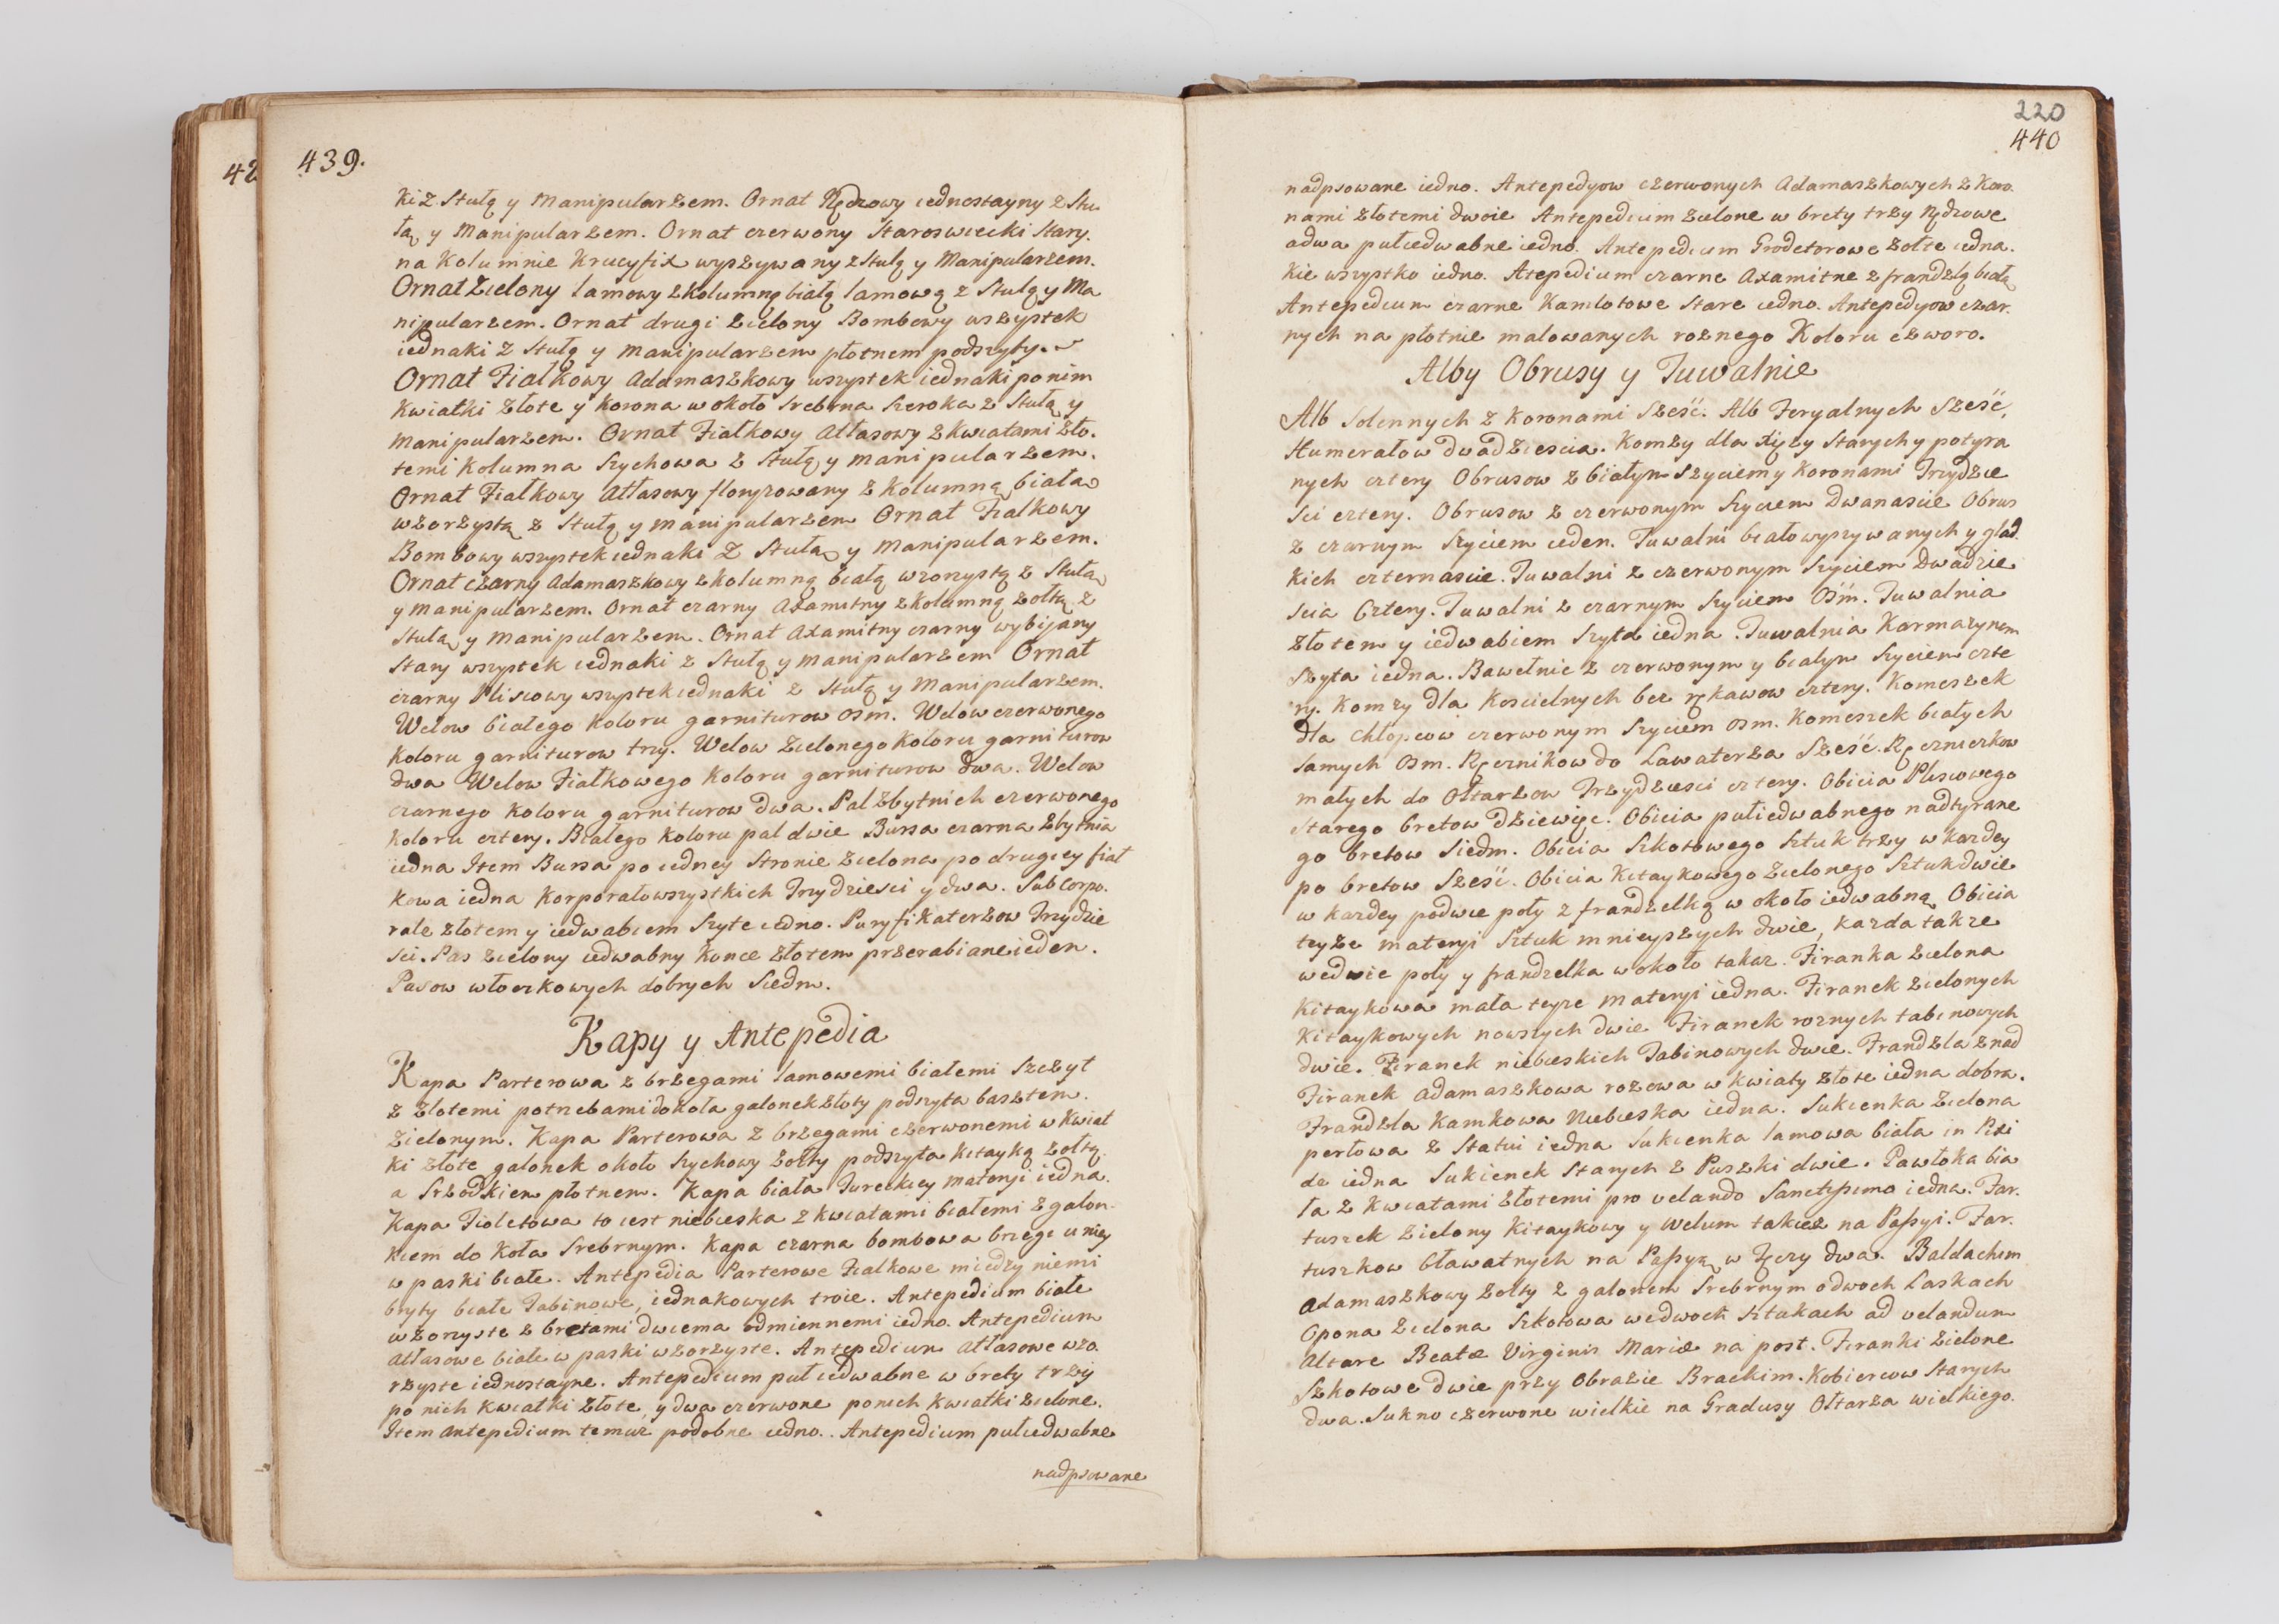 42
439.
ki z Stułą y Manipularzem. Ornat Rędzowy iednostayny z Stu
łą y Manipularzem. Ornat czerwony Staroswiecki Stary.
na Kolumnie Krucyfix wyszywany z Stułą y Manipularzem.
Ornat Zielony lamowy z kolumną białą lamową z Stułą y Ma
nipularzem. Ornat drugi zielony Bombowy wszystek
iednaki z Stułą y Manipularzem płotnem podszyty.
Ornat Fiałkowy Adamaszkowy wszystek iednaki po nim
Kwiatki złote y Korona w około srebrna szeroka z Stułą y
Manipularzem. Ornat Fiałkowy Atłasowy z kwiatami zło.
temi Kolumna szychowa z Stułą y Manipularzem.
Ornat Fiałkowy Atłasowy floryzowany z kolumną białą
wzorzystą z Stułą y Manipularzem Ornat Fiałkowy
Bombowy wszystek iednaki z Stułą y Manipularzem.
Ornat czarny Adamaszkowy z kolumną białą wzorzystą z Stułą
y Manipularzem. Ornat czarny Axamitny z kolumną żołtą z
Stułą y Manipularzem. Ornat Axamitny czarny wybijany
Stary wszystek iednaki z Stułą y Manipularzem Ornat
czarny Plisowy wszystek iednaki z Stułą y Manipularzem.
Welow białego koloru garniturow osm. Welow czerwonego
koloru garniturow trzy. Welow Zielonego koloru garniturow
dwa Welow Fiałkowego koloru garniturow dwa. Welow
czarnego koloru garniturow dwa. Pal zbytnich czerwonego
koloru cztery. Białego koloru pal dwie Bursa czarna zbytnia
iedna Item Bursa po iedney stronie zielona po drugiey fiał
kowa iedna Korporałow wszystkich Trzydziesci y dwa. Sub Corpo.
rale złotem y iedwabiem szyte iedno. Puryfikaterzow Trzydzie
sci. Pas zielony iedwabny konce złotem przerabiane ieden.
Pasow włoczkowych dobrych Siedm.
Kapy y Antepedia
Kapa Parterowa z brzegami lamowemi białemi Szczyt
z złotemi potrzebami dokoła galonek złoty podszyta basztem.
Zielonym. Kapa Parterowa z brzegami czerwonemi w kwiat
ki złote galonek około szychowy żołty podszyta kitayką żołtą.
a srzodkiem płotnem. Kapa biała Tureckiey materyi iedna.
Kapa Fioletowa to iest niebieska z kwiatami białemi z galon.
kiem do koła srebrnym. Kapa czarna bombowa brzegi u niey
w paski białe. Antepedia Parterowe Fiałkowe miedzy niemi
bryty białe Tabinowe, iednakowych troie. Antepedium białe
wzorzyste z bretami dwiema odmiennemi iedno. Antepedium
Atłasowe białe w paski wzorzyste. Antepedium Atłasowe wzo.
rzyste iednostayne. Antepedium puł iedwabne w brety trzy
po nich kwiatki złote, y dwa czerwone ponich kwiatki zielone.
Item Antepedium temuz podobne iedno. Antepedium pułiedwabne
nadpsowane
220
440
nadpsowane iedno. Antepedyow czerwonych Adamaszkowych z Koro.
nami złotemi dwoie Antepedium zielone w brety trzy Rędzowe
a dwa pułiedwabne iedno. Antepedium Grodetorowe żołte iedna.
kie wszystko iedno. Atepedium czarne Axamitne z frandzlą białą
Antepedium czarne Kamlotowe Stare iedno. Antepedyow czar.
nych na płotnie malowanych roznego Koloru czworo.
Alby Obrusy y Tuwalnie
Alb Solennych z Koronami Sześć. Alb Feryalnych sześć,
Humerałow dwadziescia. Komży dla Xięży Starych y potyra
nych cztery Obrusow z białym szyciem y koronami Trzydzie
sci cztery. Obrusow z czerwonym szyciem Dwanascie Obrus
z czarnym szyciem ieden. Tuwalni biało wyszywanych y glad
kich czternascie. Tuwalni z czerwonym szyciem Dwadzie
scia Cztery. Tuwalni z czarnym szyciem Ośm. Tuwalnia
złotem y iedwabiem szyta iedna. Tuwalnia Karmazynem
szyta iedna. Bawełnic z czerwonym y białym szyciem czte
ry. Komzy dla Koscielnych bez rękawow cztery. Komeszek
dla chłopcow czerwonym szyciem osm. Komeszek białych
samych Osm. Ręcznikow do Lawaterza Sześć. Ręczniczkow
małych do Ołtarzow Trzydziesci cztery. Obicia Plisowego
starego bretow dziewięc. Obicia pułiedwabnego nadtyrane
go bretow Siedm. Obicia Szkotowego sztuk trzy w kazdey
po bretow Sześć. Obicia Kitaykowego Zielonego Sztuk dwie
w kazdey podwie poły z frandzelką w około iedwabną Obicia
teyze materyi Sztuk mnieyszych dwie, kazda takze
wedwie poły y frandzelka w około takaz. Firanka zielona
Kitaykowa mała teyze materyi iedna. Firanek zielonych
Kitaykowych nowszych dwie Firanek roznych tabinowych
dwie. Firanek niebieskich Tabinowych dwie. Frandzla z nad
Firanek Adamaszkowa rozowa w kwiaty złote iedna dobra.
Frandzla Kamkowa Niebieska iedna. Sukienka Zielona
perłowa z Statui iedna Sukienka lamowa biała in Pixi
de iedna Sukienek Starych z Puszki dwie. Pawłoka bia
ła z kwiatami złotemi pro velando Sanctissimo iedna. Far.
tuszek Zielony Kitaykowy y Welum takiez na Passyi. Far.
tuszkow bławatnych na Passyą w Ręczy dwa. Baldachim
Adamaszkowy żołty z galonem srebrnym o dwoch Laskach
Opona Zielona Szkotowa wedwoch sztukach ad velandum
Altare Beatæ Virginis Mariæ na post. Firanki zielone
Szkotowe dwie przy Obrazie Brackim. Kobiercow Starych
dwa. Sukno czerwone wielkie na Gradusy Ołtarza wielkiego.